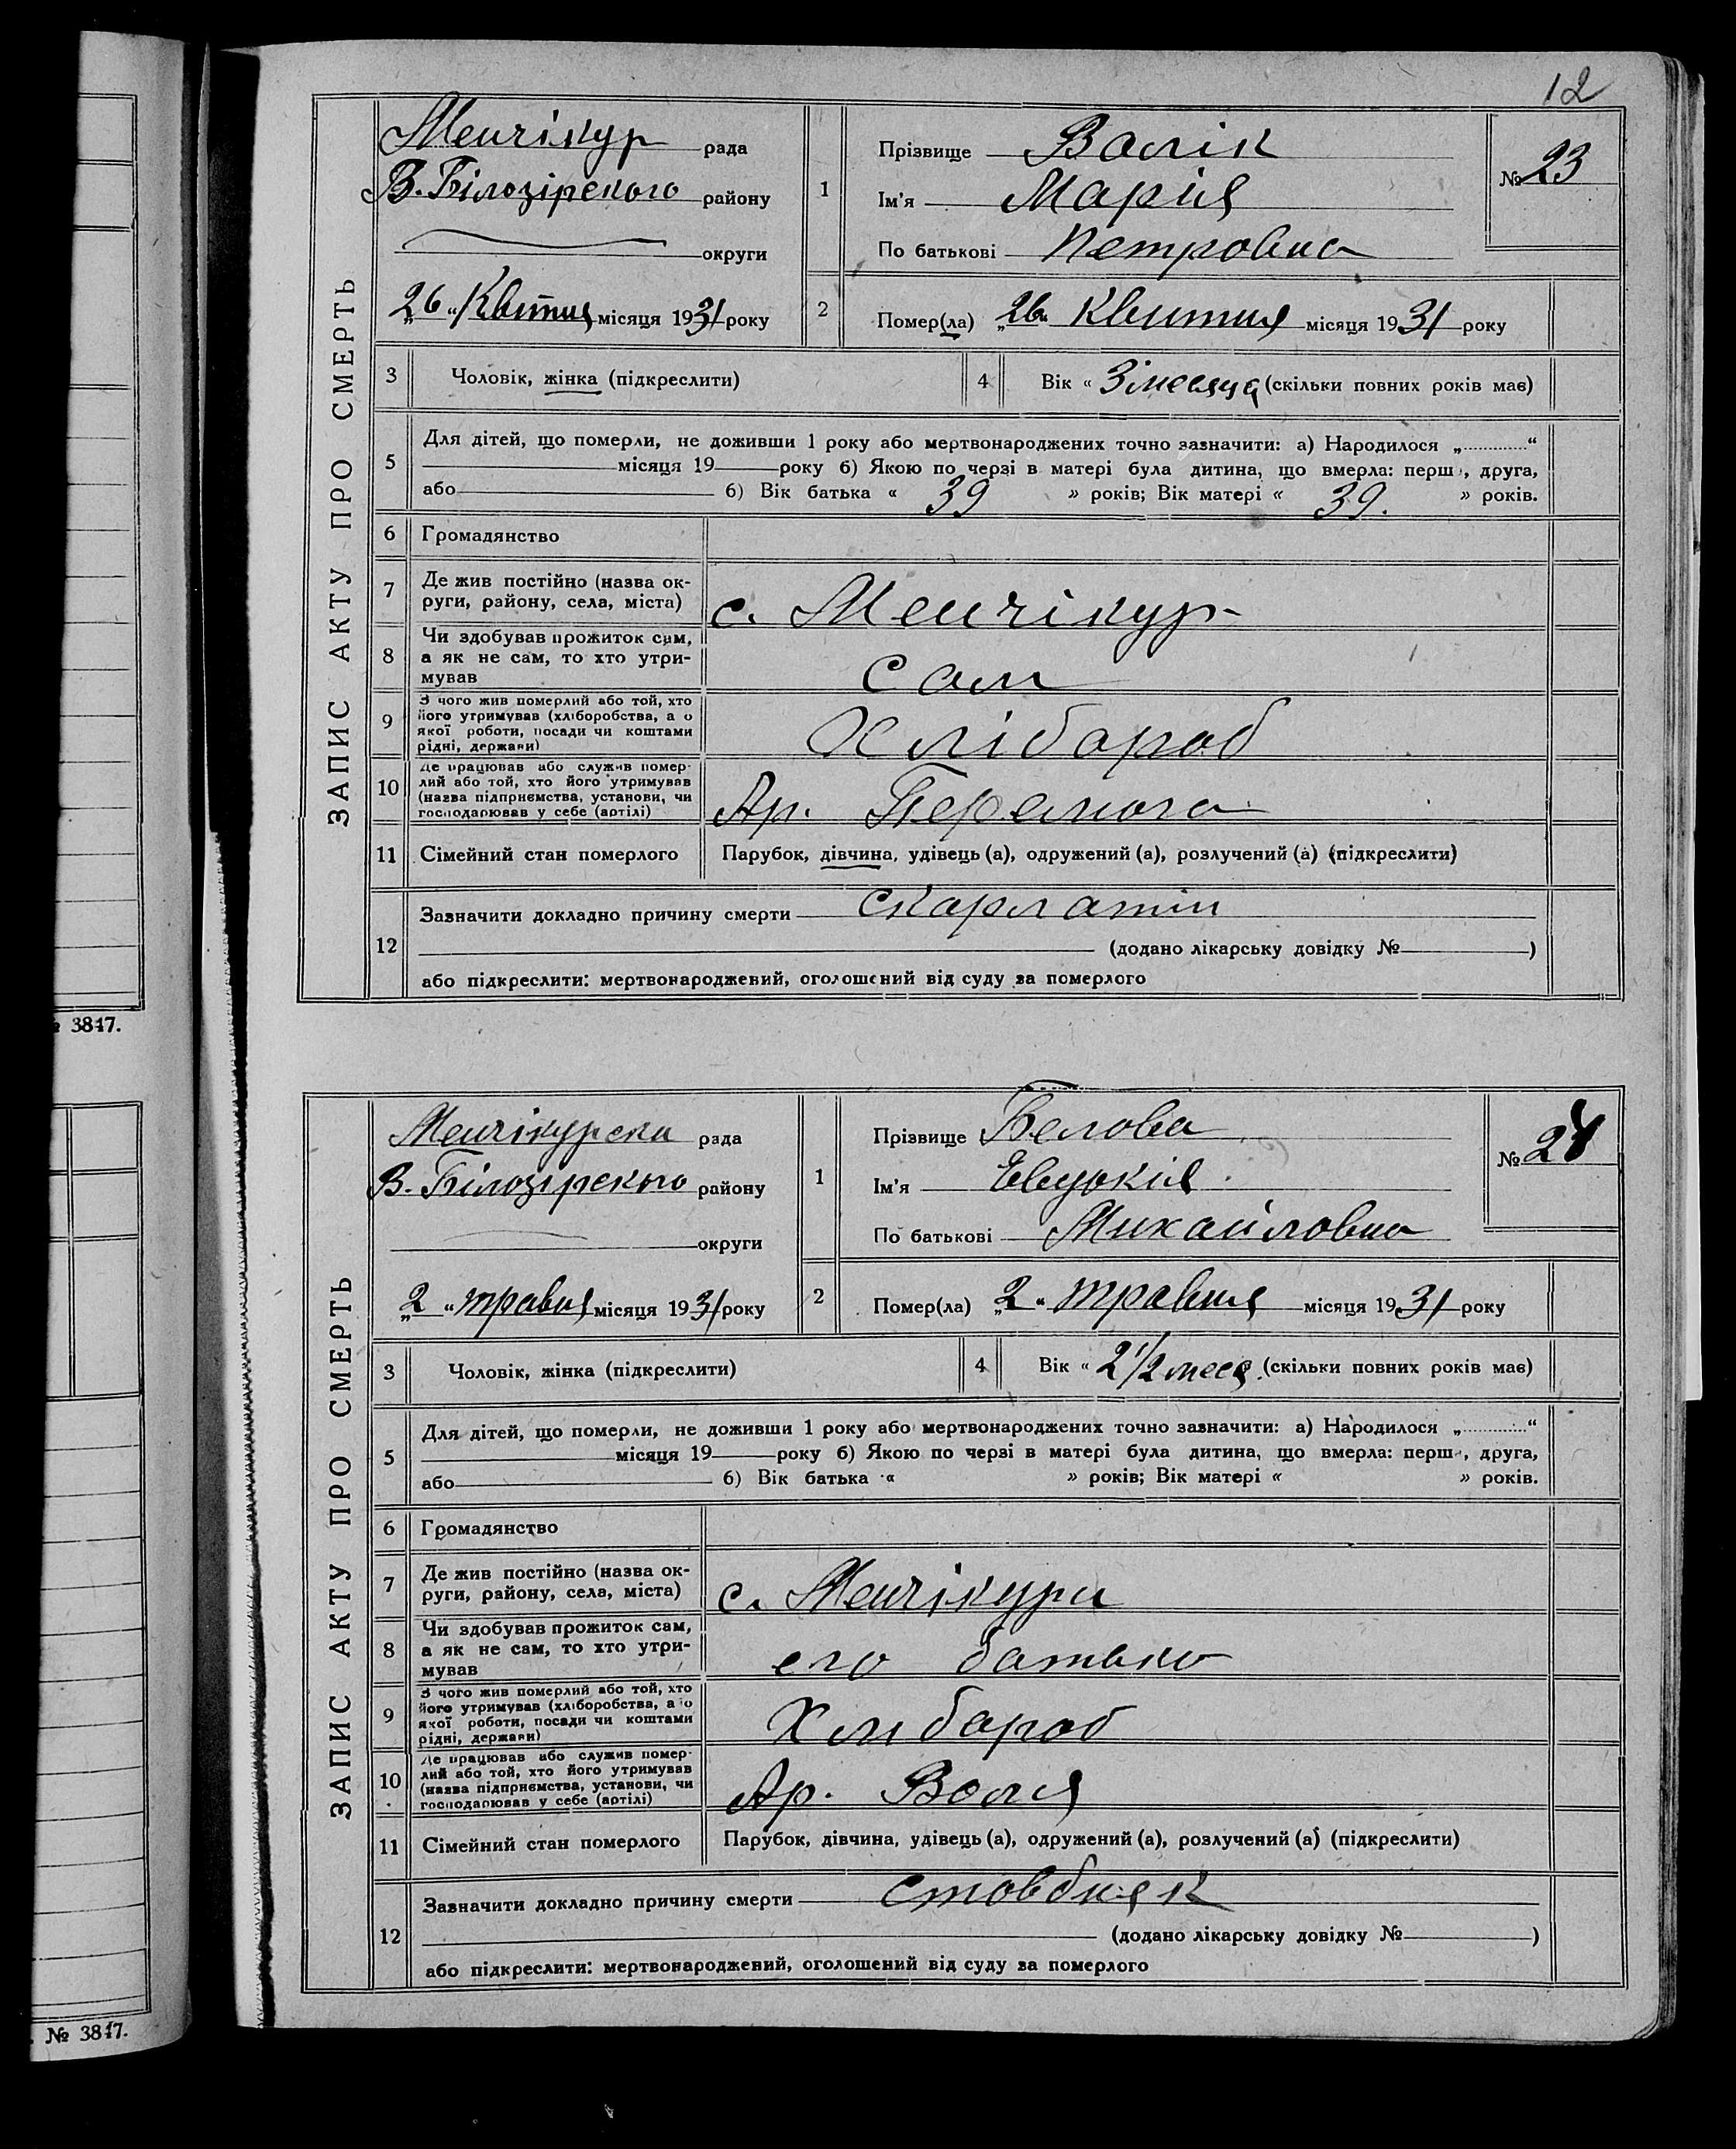 12
ЗАПИС АКТУ ПРО СМЕРТЬ
Менчікур рада
В. Білозірського району
округи
„26“ Квітня місяця 1931 року
1
Прізвище Волік
Ім'я Марія
По батькові Петровна
№ 23
2
Помер(ла) „26“ Квитня місяця 1931 року
3
Чоловік, жінка (підкреслити)
4
Вік « 3 месяця (скільки повних років має)
5
Для дітей, що померли, не доживши 1 року або мертвонароджених точно зазначити: а) Народилося „............“
місяця 19 року б) Якою по черзі в матері була дитина, що вмерла: перша, друга,
або 6) Вік батька « 39 » років; Вік матері « 39. » років.
6
Громадянство
7
Де жив постійно (назва ок-
руги, району, села, міста)
с. Менчікур
8
Чи здобував прожиток сам,
а як не сам, то хто утри-
мував
Сам
9
З чого жив померлий або той, хто
його утримував (хліборобства, а о
якої роботи, посади чи коштами
рідні, держави)
Хлібороб
10
Де працював або служив помер-
лий або той, хто його утримував
(назва підприємства, установи, чи
господарював у себе (артілі)
Ар. Перемога
11
Сімейний стан померлого
Парубок, дівчина, удівець (а), одружений (а), розлучений (а) (підкреслити)
12
Зазначити докладно причину смерти скарлатин
(додано лікарську довідку № )
або підкреслити: мертвонароджений, оголошений від суду за померлого
ЗАПИС АКТУ ПРО СМЕРТЬ
Менчікурска рада
В. Білозірского району
округи
„2“ травня місяця 1931 року
1
Прізвище Белова
Ім'я Евдокія
По батькові Михайловна
№ 24
2
Помер(ла) „2“ травня місяця 1931 року
3
Чоловік, жінка (підкреслити)
4
Вік « 2 1/2 меся. (скільки повних років має)
5
Для дітей, що померли, не доживши 1 року або мертвонароджених точно зазначити: а) Народилося „............“
місяця 19 року б) Якою по черзі в матері була дитина, що вмерла: перша, друга,
або 6) Вік батька « » років; Вік матері « » років.
6
Громадянство
7
Де жив постійно (назва ок-
руги, району, села, міста)
с. Менчікури
8
Чи здобував прожиток сам,
а як не сам, то хто утри-
мував
его батько
9
З чого жив померлий або той, хто
його утримував (хліборобства, а о
якої роботи, посади чи коштами
рідні, держави)
Хлибороб
10
Де працював або служив помер-
лий або той, хто його утримував
(назва підприємства, установи, чи
господарював у себе (артілі)
Ар. Воля
11
Сімейний стан померлого
Парубок, дівчина, удівець (а), одружений (а), розлучений (а) (підкреслити)
12
Зазначити докладно причину смерти стовбняк
(додано лікарську довідку № )
або підкреслити: мертвонароджений, оголошений від суду за померлого
№ 3847.
№ 3847.